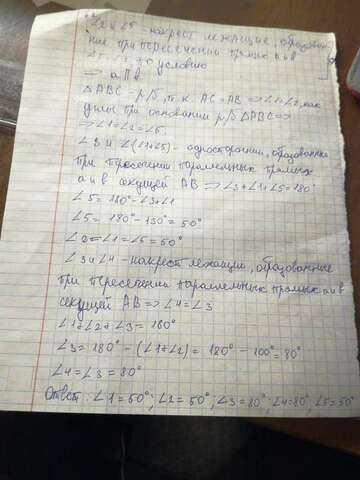 ∠2 и ∠5 - накрест лежащие, образован-
ные при пересечении прямых a и b
условию
⇒ a∥b
△ABC - р/б, т.к. AC = AB ⇒ ∠1=∠2, как
углы при основании р/б △ABC ⇒
⇒ ∠1=∠2=∠5.
∠3 и ∠(∠1+∠5) - односторонние, образованные
при пересечении параллельных прямых
a и b секущей AB ⇒ ∠3+∠1+∠5=180°
∠5 = 180°-∠3+∠1
∠5 = 180°-130° = 50°
∠2=∠1=∠5=50°
∠3 и ∠4 - накрест лежащии, образованные
при пересечении параллельных прямых a и b
секущей AB ⇒ ∠4=∠3
∠1+∠2+∠3=180°
∠3=180°-(∠1+∠2)=180°-100°=80°
∠4=∠3=80°
Ответ: ∠1=50°; ∠2=50°; ∠3=80°; ∠4=80°; ∠5=50°